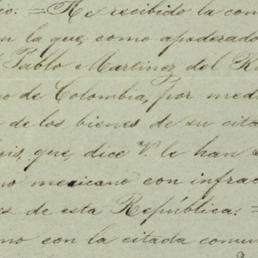 co: = He recibido la con
n la que, como apoderado
Pablo Martinez del R
no de Colombia, por med
de los bienes de su cita
is, que, dice V. le han
no mexicano con infrac
es de esta República: =
mo con la citada comu